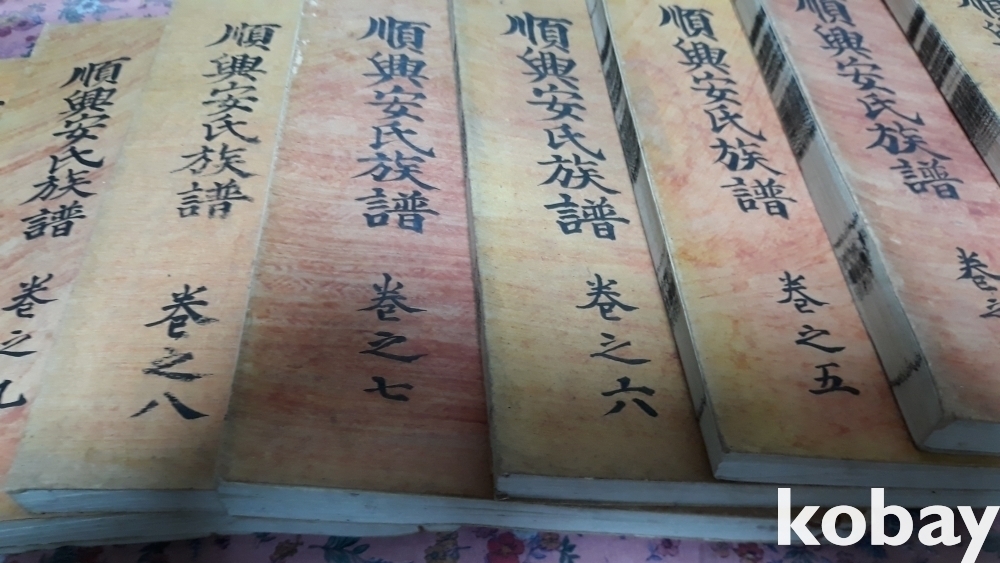 順興安氏族譜
卷之
順興安氏族譜
卷之五
順興安氏族譜
卷之六
順興安氏族譜
卷之七
順興安氏族譜
卷之八
順興安氏族譜
卷之九
kobay